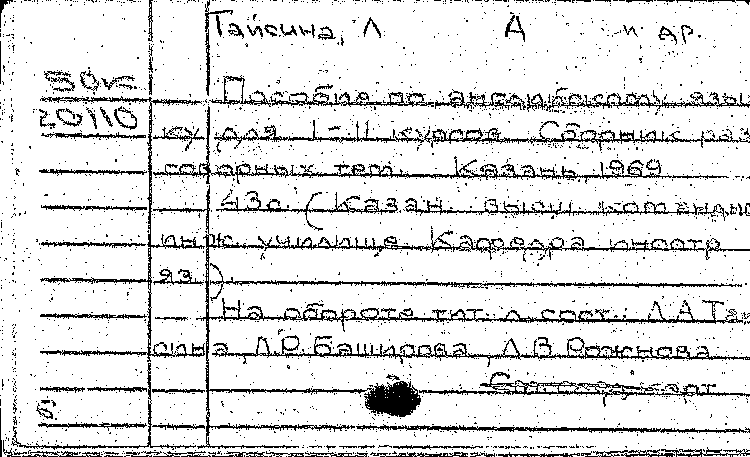 Тайсина, Л Д и др.
50к
20110
Пособие по английскому язы
ку для I-II курсов Сборник раз
говорных тем. Казань, 1969
43с. (Казан. высш. командно
инж. училище Кафедра иностр
яз.).
На обороте тит. л. сост.: Л.А Тай
сина, Л.Р. Баширова, Л.В. Рожнова